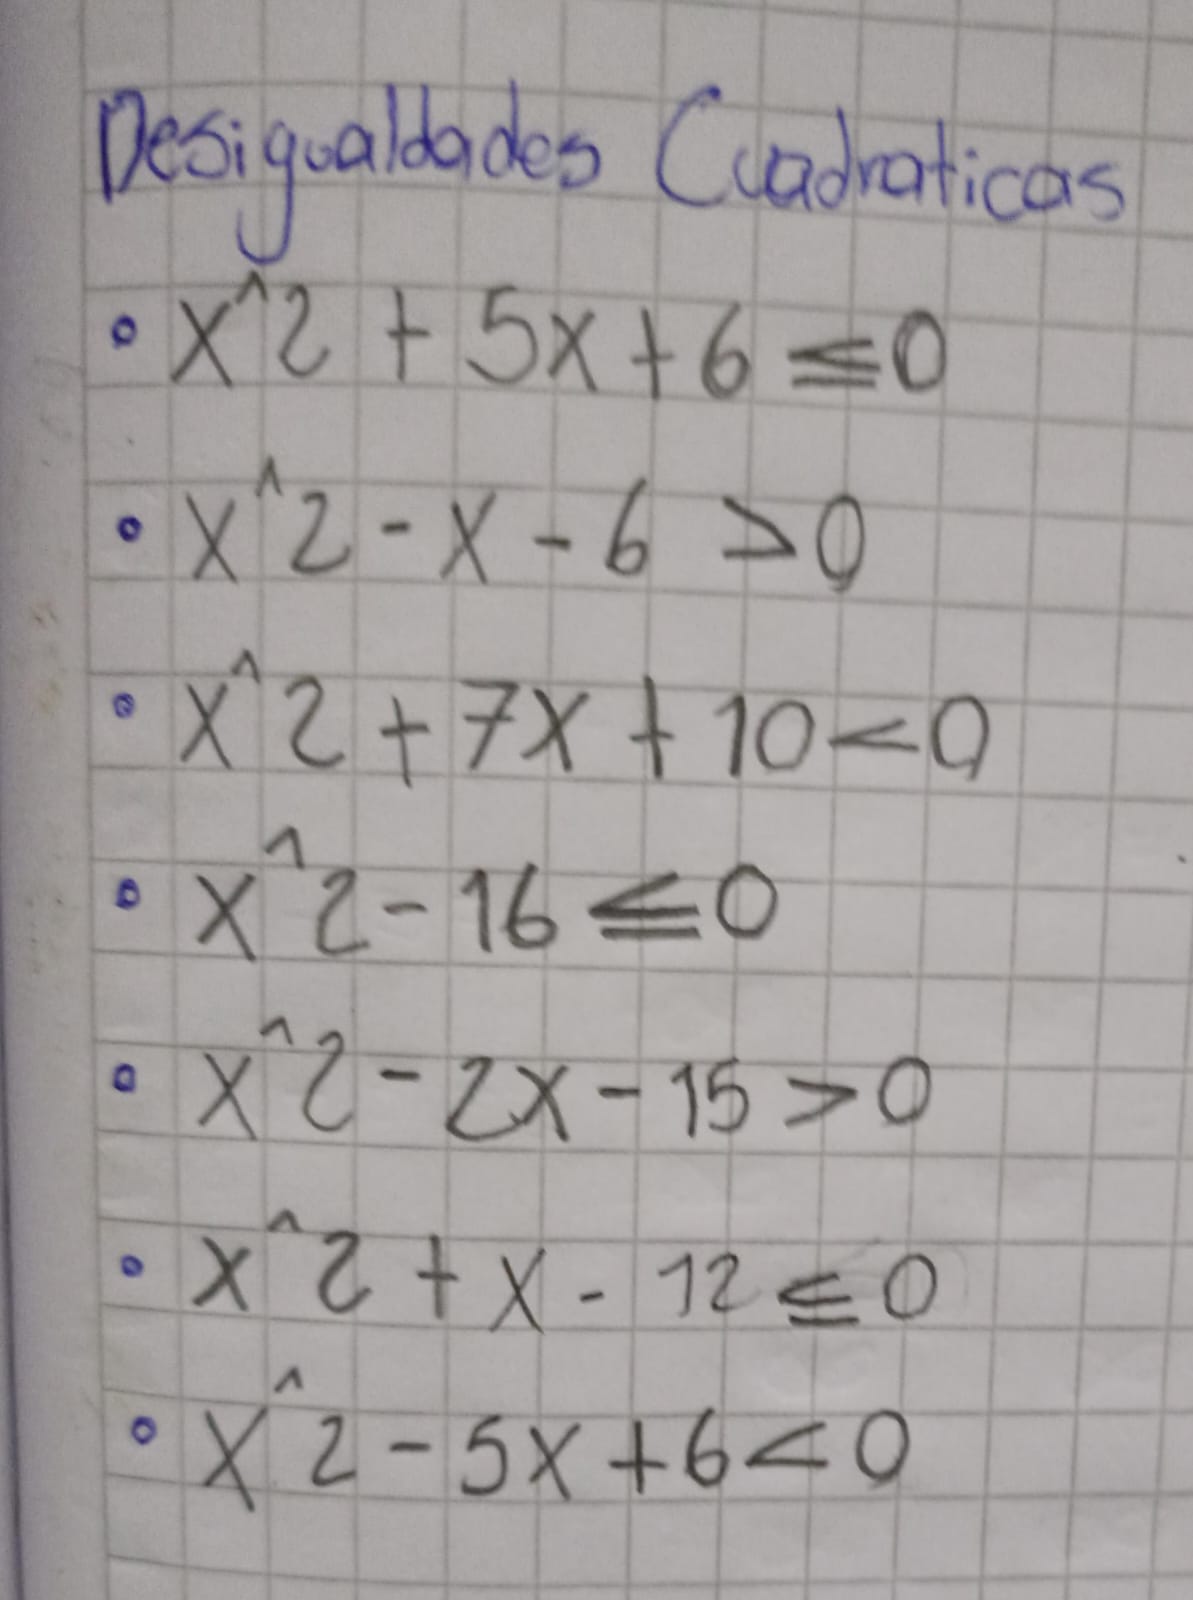 Desigualdades Cuadraticas
• x^2 + 5x + 6 ≤ 0
• x^2 - x - 6 > 0
• x^2 + 7x + 10 < 0
• x^2 - 16 ≤ 0
• x^2 - 2x - 15 > 0
• x^2 + x - 12 ≤ 0
• x^2 - 5x + 6 < 0